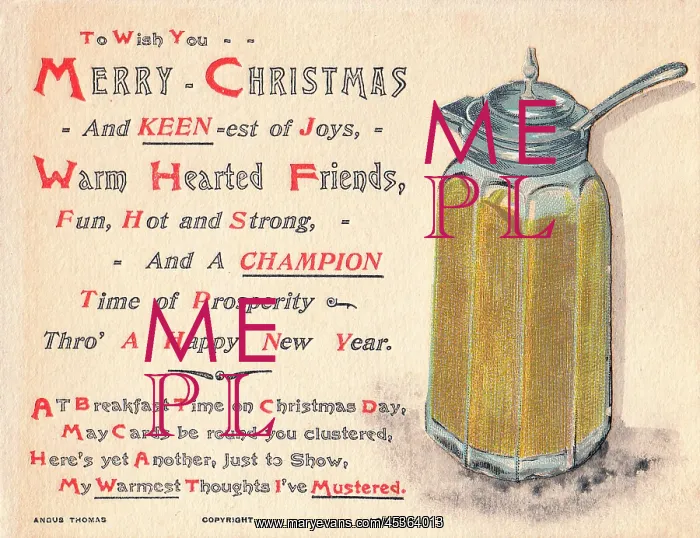 To Wish You - -
MERRY - CHRISTMAS
- And KEEN-est of Joys, -
Warm Hearted Friends,
Fun, Hot and Strong, -
- And A CHAMPION
Time of Prosperity
Thro' A Happy New Year.
AT Breakfast Time on Christmas Day,
May Cards be round you clustered,
Here's yet Another, Just to Show,
My Warmest Thoughts I've Mustered.
ANGUS THOMAS COPYRIGHT
ME
PL
ME
PL
www.maryevans.com/45364013